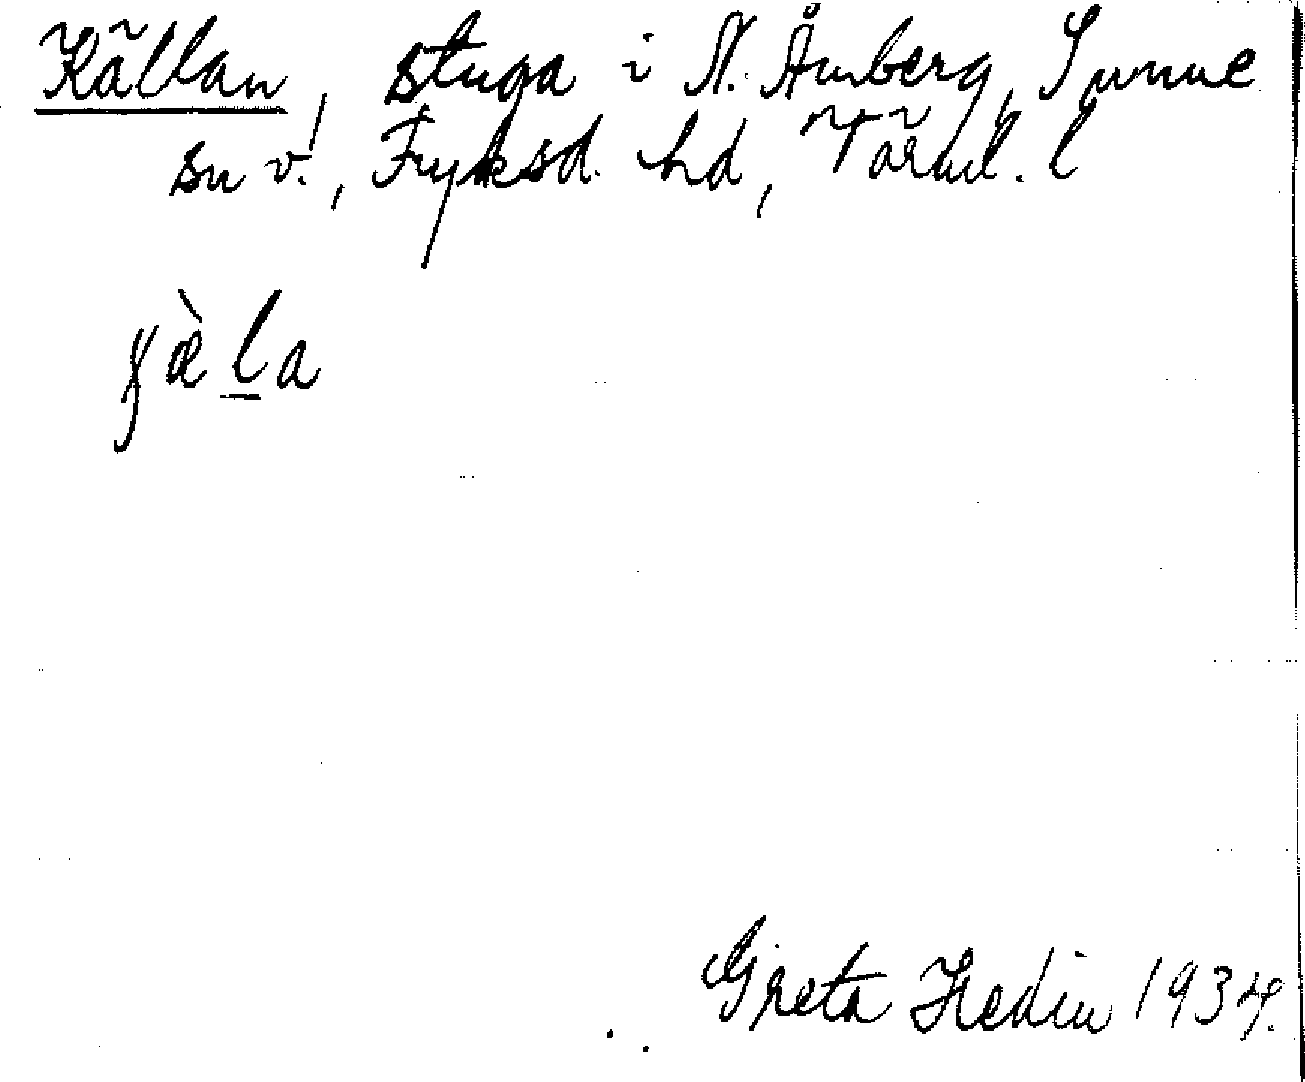 Källan, stuga i N. Åmberg, Sunne
sn v.!, Fryksd. hd, Värml. l
ɣæ̀l̲a
Greta Hedin 1934.